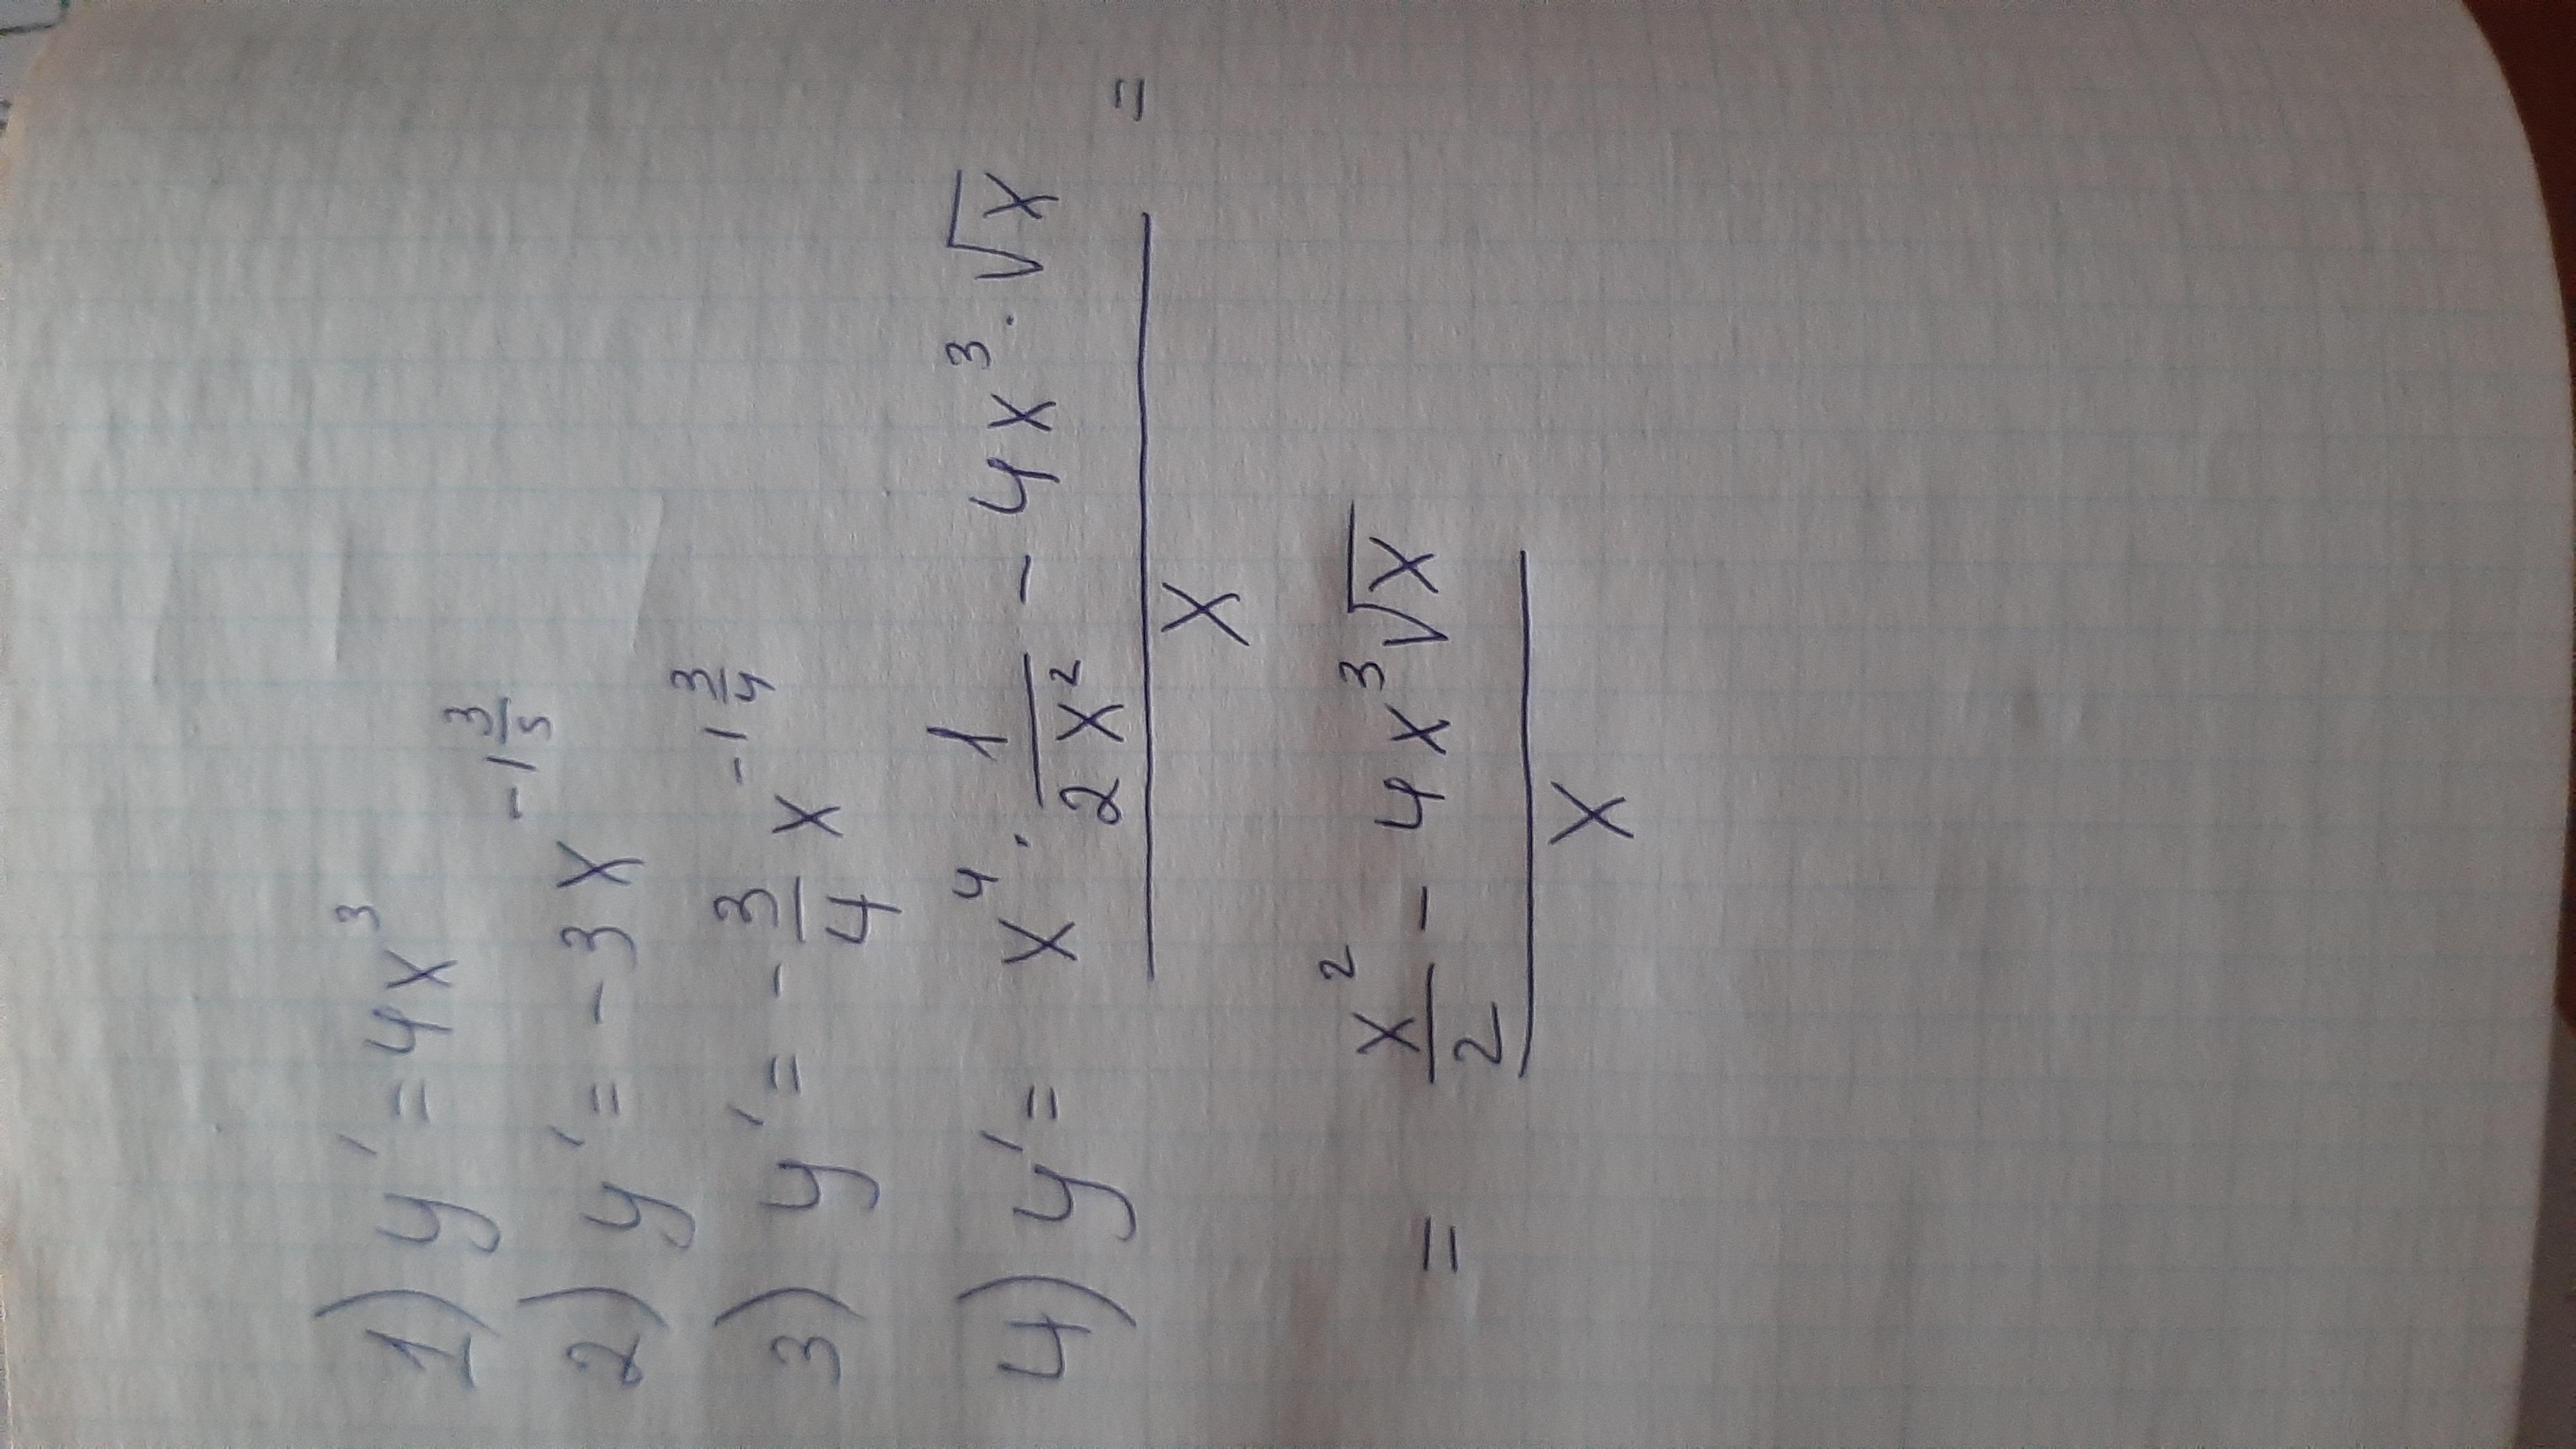 1) y' = 4x³
2) y' = -3x^(-1 3/5)
3) y' = -3/4 x^(-1 3/4)
4) y' = (x⁴ · 1/(2x²) - 4x³ · √x)/x =
= (x²/2 - 4x³√x)/x